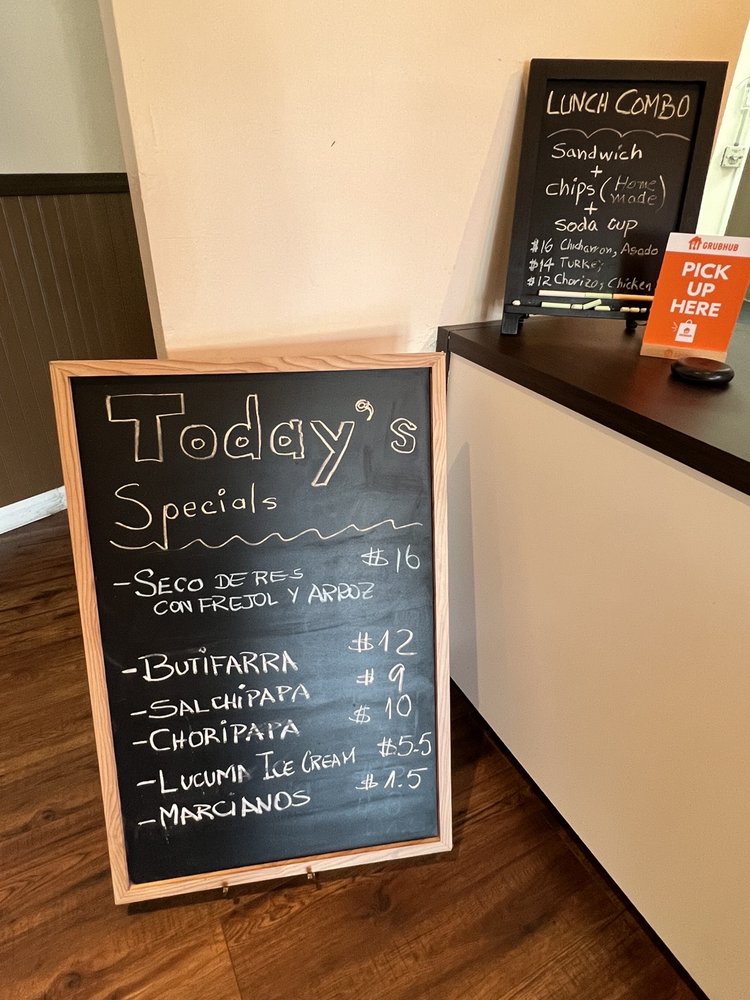 Today's
Specials
- SECO DE RES $16
CON FREJOL Y ARROZ
- BUTIFARRA $12
- SALCHIPAPA $9
- CHORIPAPA $10
- LUCUMA ICE CREAM $5.5
- MARCIANOS $1.5
LUNCH COMBO
Sandwich
+
chips (Home made)
+
soda cup
$16 Chicharron, Asado
$14 TURKEY
$12 Chorizo, Chicken
GRUBHUB
PICK
UP
HERE